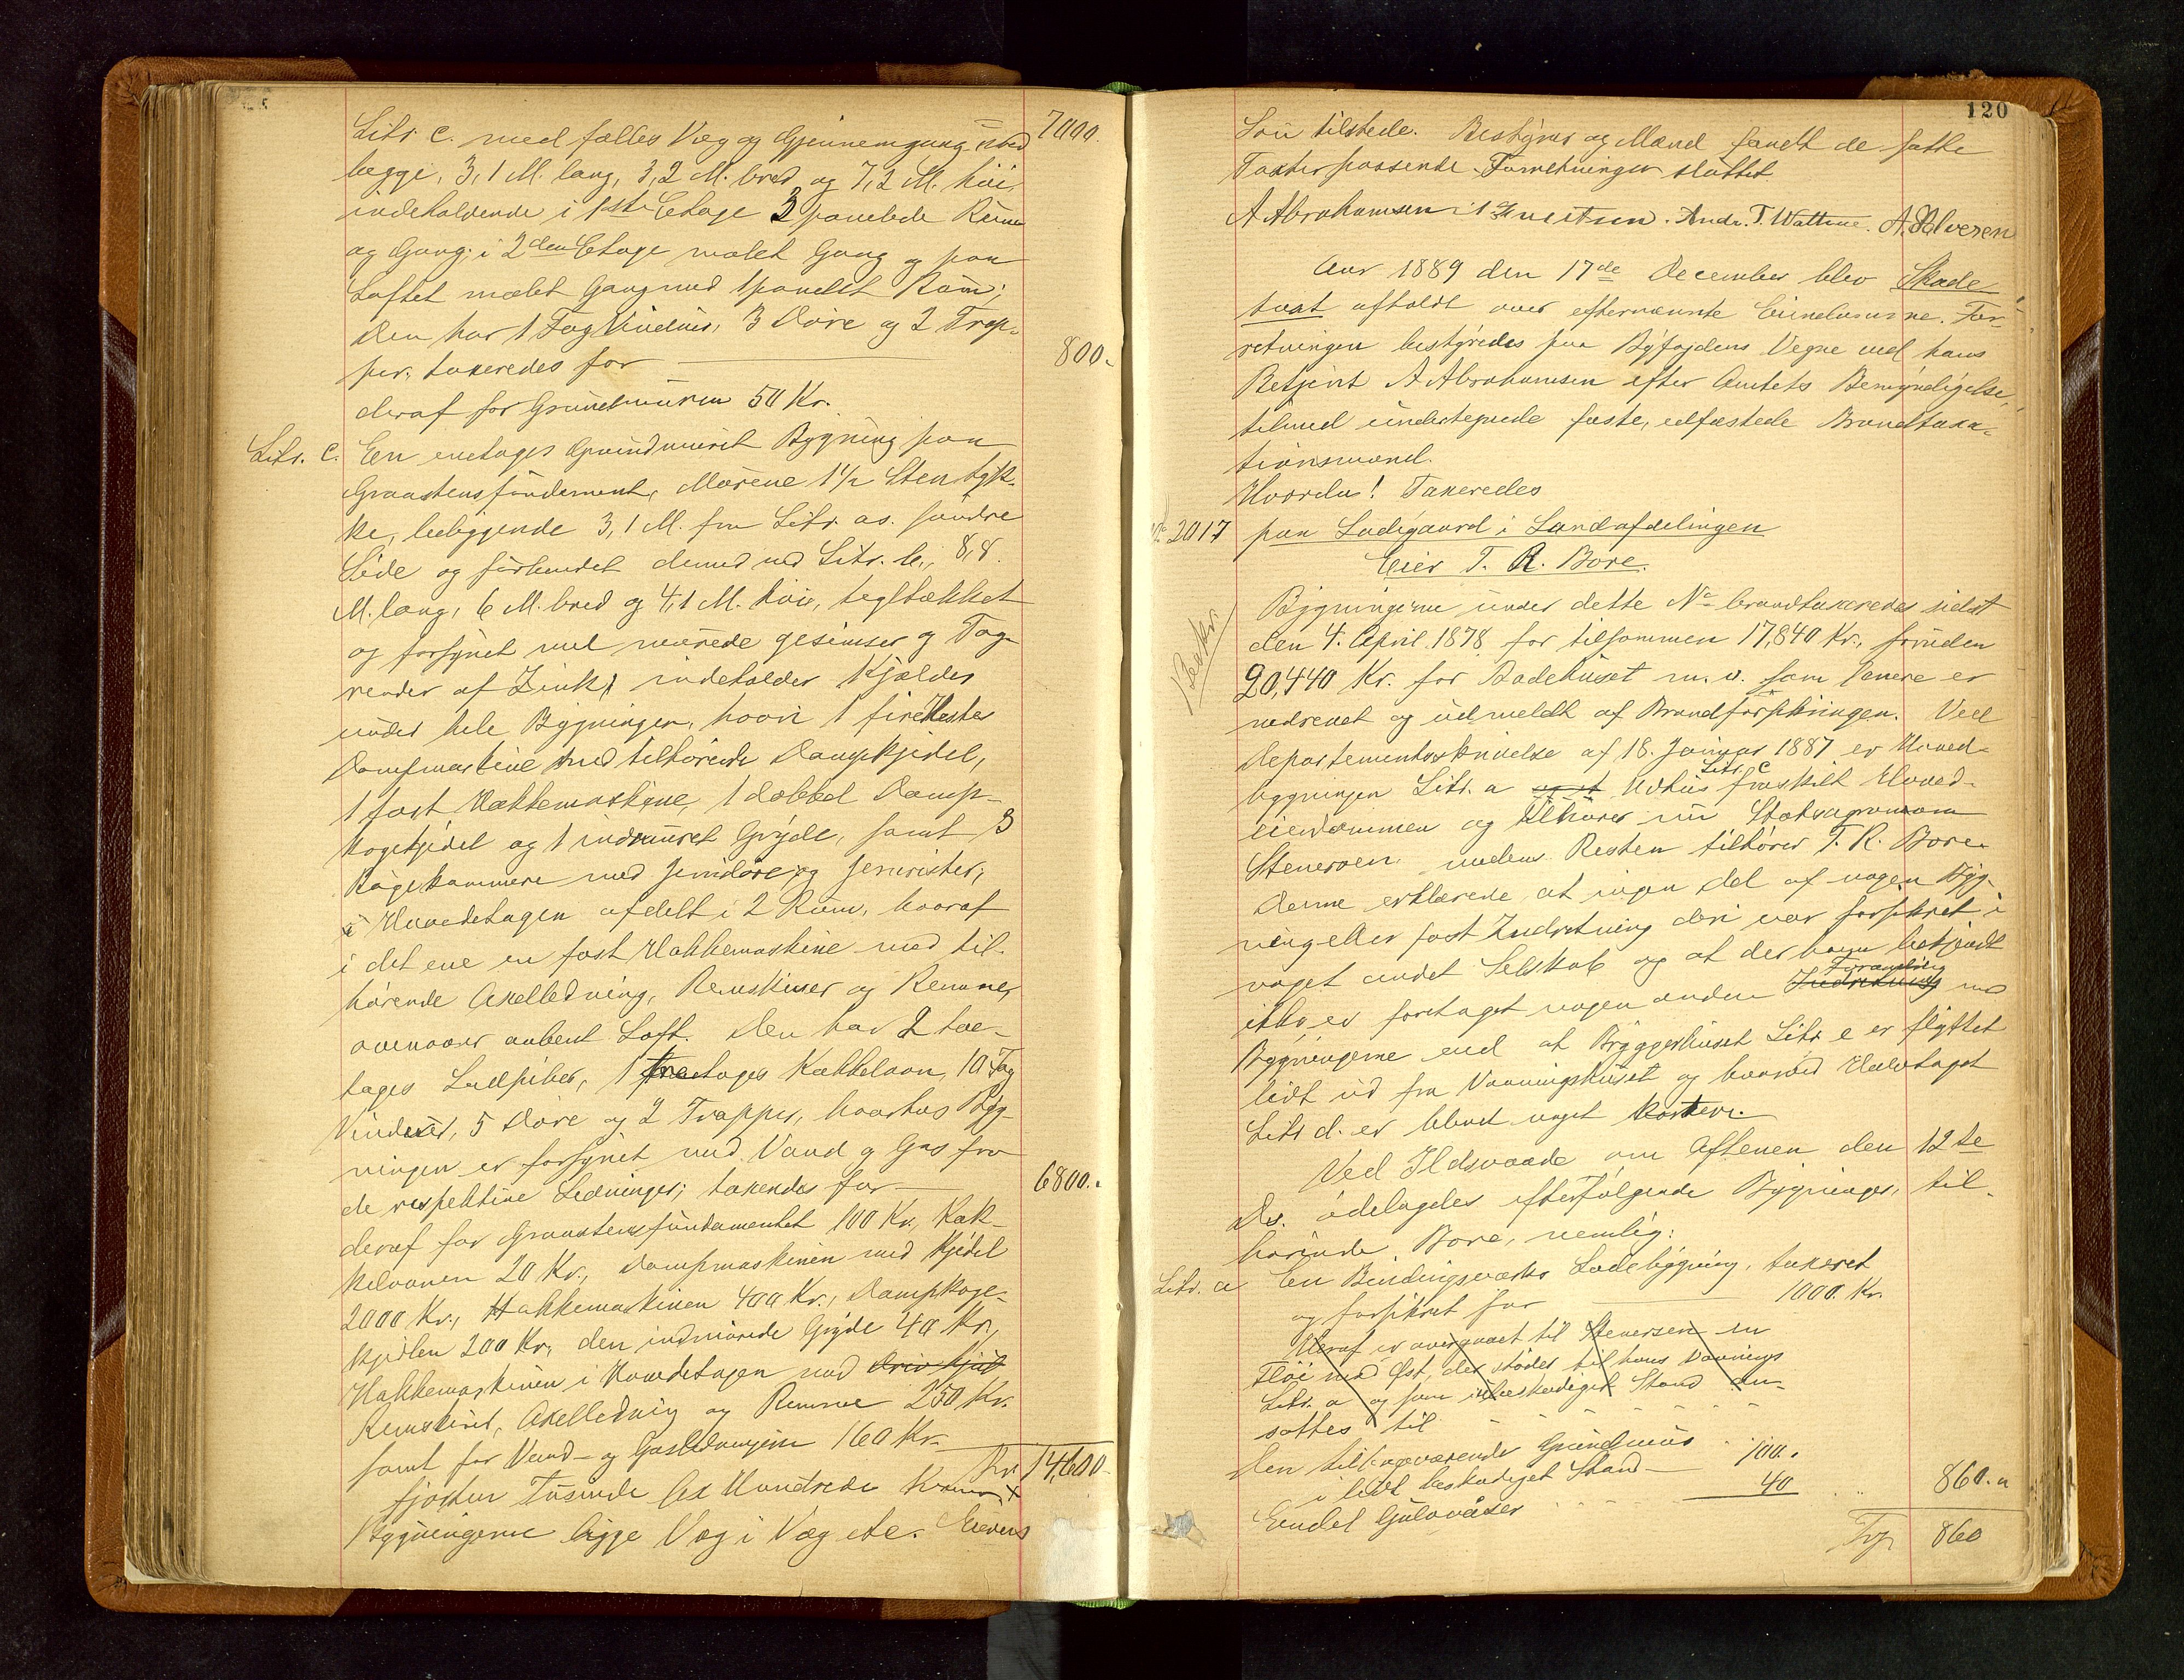 Litr. C. med fælles Væg og Gjennemgang
7000.
begge, 3,1 M. lang, 3,2 M. bred og 7,2 M. høi,
indeholdende i 1ste Etage 3 panelede Rum
og Gang; i 2den Etage malet Gang og paa
Loftet malet Gang med 1 panelet Rum;
den har 1 Fag Vinduer, 3 Døre og 2 Trap-
per, taxeredes for
800.
deraf for Grundmuren 50 Kr.
Litr. C. Een eetages Grundmuret Bygning paa
Graastensfundament, Murene 1½ Sten tyk-
ke, beliggende 3,1 M. fra Litr. as. søndre
Side og forbundet dermed ved Litr. b., 8,8
M. lang, 6 M. bred og 4,1 M. høi, tegltækket
og forsynet med murede gesimser og Tag-
render af Zink; indeholder Kjælder
under hele Bygningen, hvori 1 fire Hestes
Dampmaskine med tilhørende Dampkjedel,
1 fast Hakkemaskine, 1 dobbel Damp-
kogekjedel og 1 indmuret Gryde, samt 3
Røgekammere med Jerndøre og Jernrister;
i Hovedetagen afdelt i 2 Rum, hvoraf
i det ene en fast Hakkemaskine med til-
hørende Axelledning, Remskiver og Remmer,
ovenover aabent Loft. Den har 2 toe-
tages Ludpiber, 1 treetages Kakkelovn, 10 Fag
Vinduer, 5 Døre og 2 Trapper, hvorhos Byg-
ningen er forsynet med Vand og Gas fra
de respektive Ledninger; taxeredes for
6800.
deraf for Graastensfundamentet 100 Kr., Kak-
kelovnen 20 Kr., Dampmaskinen med Kjedel
2000 Kr., Hakkemaskinen 400 Kr., Dampkoge-
kjedlen 200 Kr., den indmurede Gryde 40 Kr.,
Hakkemaskinen i Hovedetagen med
Remskiver, Axelledning og Remme 250 Kr.
samt for Vand- og Gasledningerne 160 Kr.
Kr. 14,600
fjorten Tusinde sex Hundrede Kroner
Bygningerne ligge Væg i Væg etc. Eierens
120
Søn tilstede. Bestyrer og Mænd fandt de satte
Taxter passende. Forretningen sluttet
A Abrahamsen Andr. T. Watthne. A. Solvesen
Aar 1889 den 17de December blev Skade-
taxt afholdt over efternævnte Eiendomme. For-
retningen bestyredes paa Byfogdens Vegne ved hans
Betjent A Abrahamsen efter Amtets Bemyndigelse,
tilmed undertegnede faste, edfæstede Brandtaxa-
tionsmænd.
Hvorda! Taxeredes
No 2017 paa Ladegaard i Landafdelingen
Eier T. R. Bore.
Bygningerne under dette No brandtaxeredes sidst
den 4. April 1878 for tilsammen 17,840 Kr., foruden
20,440 Kr. for Badehuset m. v. som senere er
nedrevet og udmeldt af Brandforsikringen. Ved
Departementsskrivelse af 18. Januar 1887 er Hoved-
bygningen Litr. a og et Udhus Litr. c fraskilt Hoved-
eiendommen og tilhører nu Statsagronom
Stenersen medens Resten tilhører T. R. Bore.
Denne erklærede, at ingen del af nogen Byg-
ning eller fast Indretning deri var forsikret i
noget andet Selskab og at der ham betjendt
ikke er foretaget nogen anden Indretning Forandring med
Bygningerne end at Bryggerhuset Litr. e er flyttet
lidt ud fra Vaaningshuset og hvorved Halvtaget
Litr d. er blevet noget kortere.
Ved Ildsvaade om Aftenen den 12te
ds. ødelagdes efterfølgende Bygninger, til-
hørende Bore, nemlig:
Litr. a En Bindingsværks Ladebygning, taxeret
og forsikret for 1000. Kr.
Heraf er overgaaet til Stenersen en
Fløi mod Øst, der støder til hans Vaanings
Litr. a og som i ubeskadiget Stand an-
sattes til
Den tilbageværende Grundmur
i lidt beskadiget Stand 100.
Eendel Gulvaaser 40
860.
Trp. 860